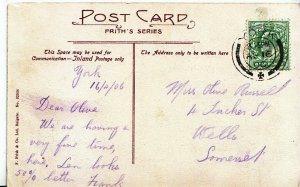 POST CARD
FRITH'S SERIES
This Space may be used for
Communication—Inland Postage only
The Address only to be written here
York
16/2/06
Dear Olive
We are having a
very fine time,
here, Len looks
50% better Frank
Miss Olive Russell
4 Tucker St
Wells
Somerset
F. Frith & Co. Ltd. Reigate.